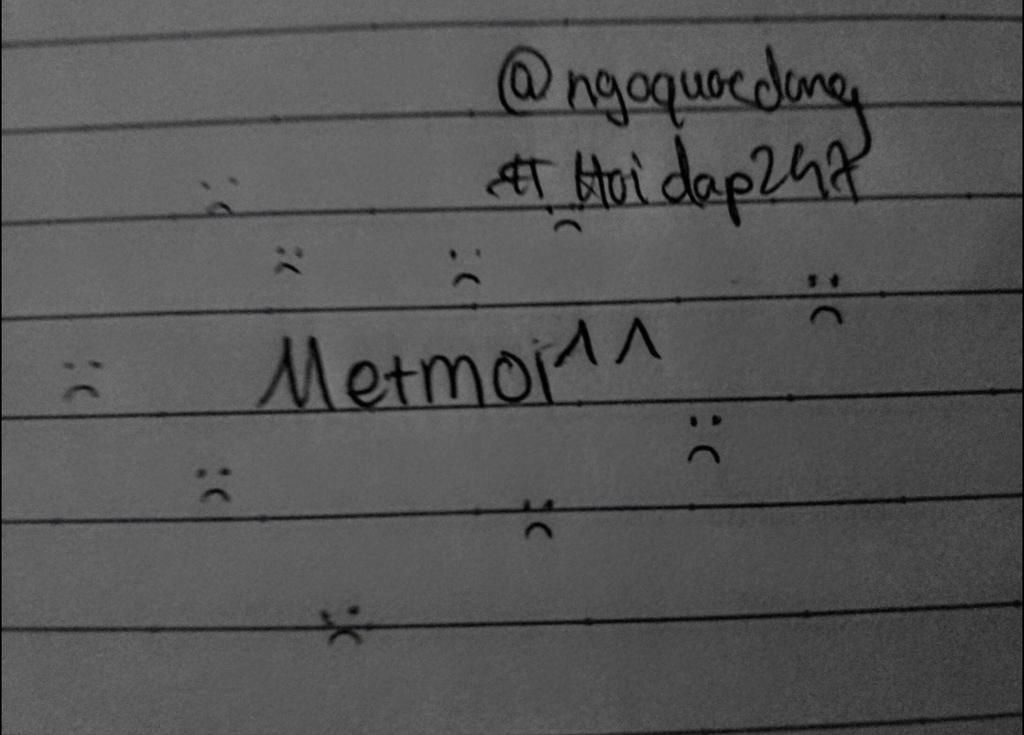 @ngoquocdang
# Hoidap247
Metmoi^^